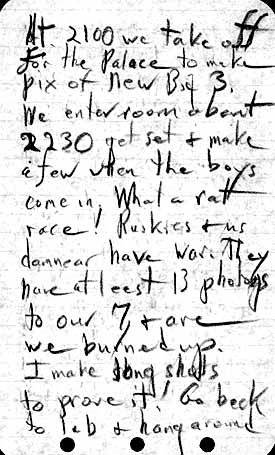 At 2100 we take off
for the Palace to make
pix of New Big 3.
We enter room about
2230 get set & make
a few when the boys
come in. What a rat
race! Ruskies & us
damnear have war. They
have at least 13 photogs
to our 7 & are
we burned up.
I make long shots
to prove it! Go back
to lab & hang around